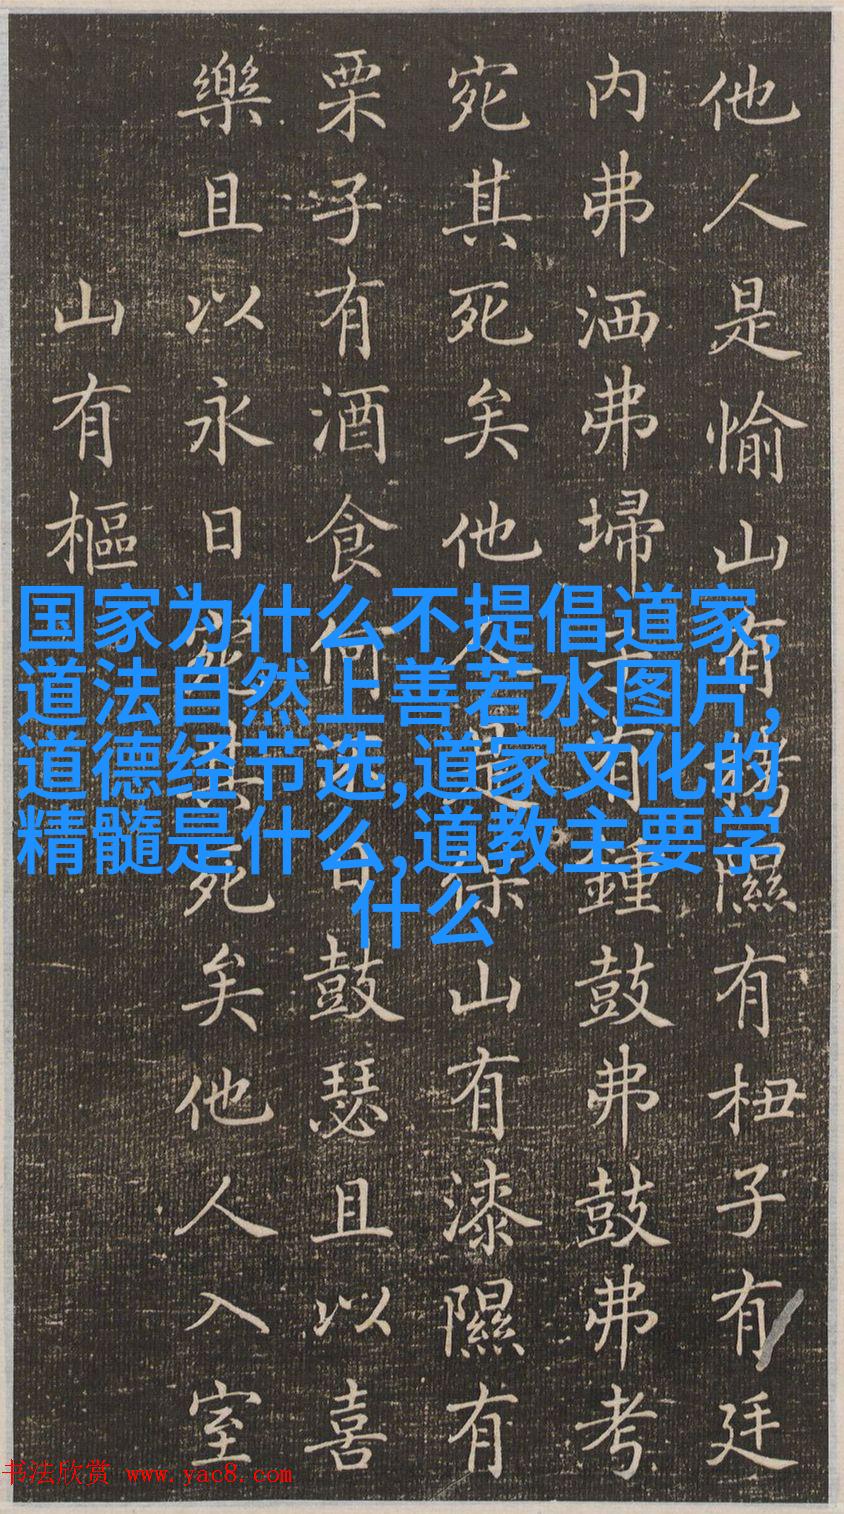 他人是愉山有栲隰有杻子有廷
内弗洒弗埽子有鍾鼓弗鼓弗考
宛其死矣他人是保山有漆隰有
栗子有酒食何不日鼓瑟且以喜
樂且以永日宛其死矣他人入室
山有樞
国家为什么不提倡道家,
道法自然上善若水图片,
道德经节选,道家文化的
精髓是什么,道教主要学
什么
书法欣赏 www.yac8.com